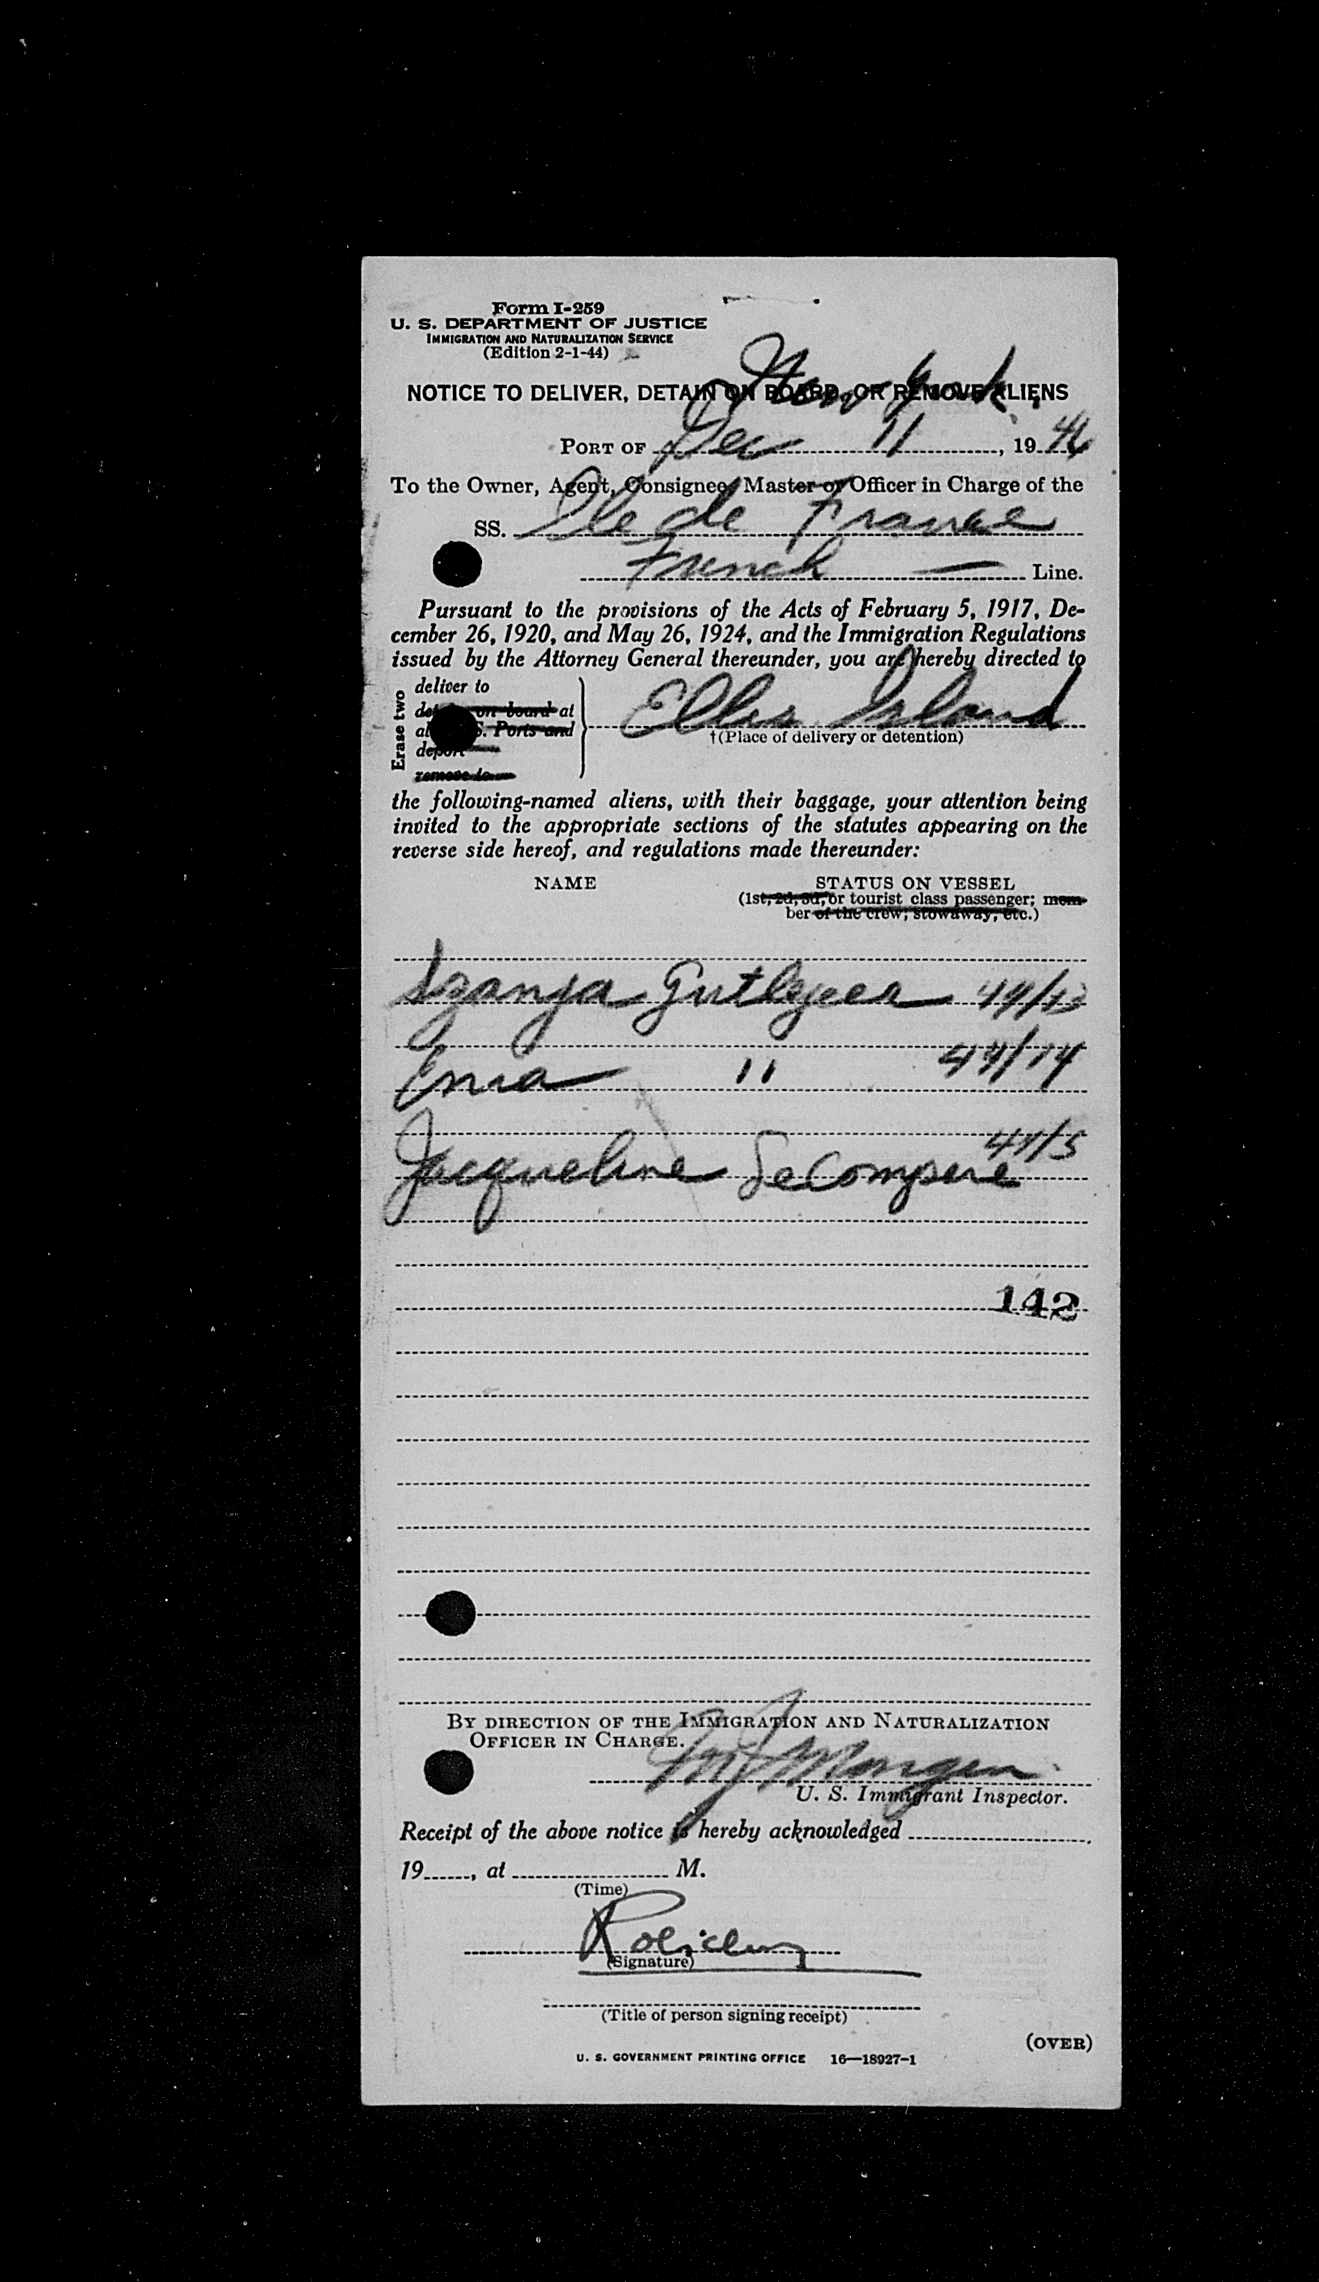 Form I-259
U. S. DEPARTMENT OF JUSTICE
IMMIGRATION AND NATURALIZATION SERVICE
(Edition 2-1-44)
New York
NOTICE TO DELIVER, DETAIN ON BOARD, OR REMOVE ALIENS
PORT OF Dec 11, 1946
To the Owner, Agent, Consignee, Master or Officer in Charge of the
SS. Ile de France
French — Line.
Pursuant to the provisions of the Acts of February 5, 1917, De-
cember 26, 1920, and May 26, 1924, and the Immigration Regulations
issued by the Attorney General thereunder, you are hereby directed to
Erase two
deliver to
on board at
Ports and
deport
remove to
Ellis Island
†(Place of delivery or detention)
the following-named aliens, with their baggage, your attention being
invited to the appropriate sections of the statutes appearing on the
reverse side hereof, and regulations made thereunder:
NAME STATUS ON VESSEL
(1st, 2d, 3d, or tourist class passenger; mem-
ber of the crew; stowaway, etc.)
Szanja 44/13
" 44/14
44/5
Jacqueline LeCompere
142
BY DIRECTION OF THE IMMIGRATION AND NATURALIZATION
OFFICER IN CHARGE.
U. S. Immigrant Inspector.
Receipt of the above notice is hereby acknowledged
19, at M.
(Time)
(Signature)
(Title of person signing receipt)
(OVER)
U. S. GOVERNMENT PRINTING OFFICE 16—18927-1